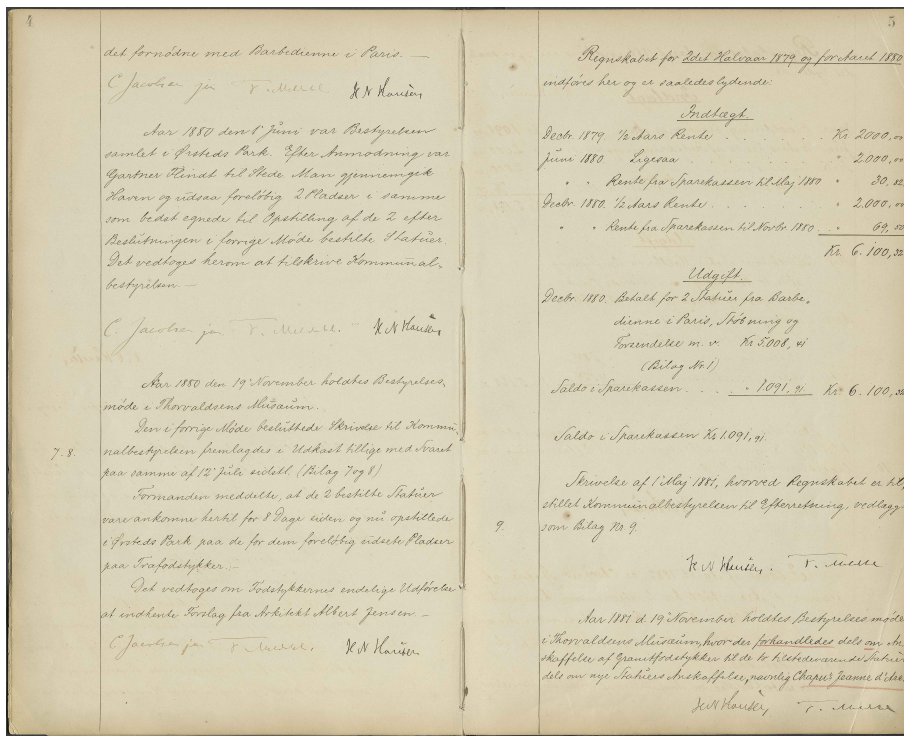 4
det fornødne med Barbedienne i Paris. —
C. Jacobsen jun H N Hansen
Aar 1880 den 1' Juni var Bestyrelsen
samlet i Ørsteds Park. Efter Anmodning var
Gartner Flindt til Stede. Man gjennemgik
Haven og udsaa foreløbig 2 Pladser i samme
som bedst egnede til Opstilling af de 2 efter
Beslutningen i forrige Møde bestilte Statuer.
Det vedtoges herom at tilskrive Kommunal-
bestyrelsen. —
C. Jacobsen jun H N Hansen
Aar 1880 den 19' November holdtes Bestyrelses,
møde i Thorvaldsens Musæum.
Den i forrige Møde besluttede Skrivelse til Kommu-
7. 8. nalbestyrelsen fremlagdes i Udkast tillige med Svaret
paa samme af 12' Juli sidstl. (Bilag 7 og 8)
Formanden meddelte, at de 2 bestilte Statuer
vare ankomne hertil for 8 Dage siden og nu opstillede
i Ørsteds Park paa de for dem foreløbig udsete Pladser
paa Træfodstykker. —
Det vedtoges om Fodstykkernes endelige Udførelse
at indhente Forslag fra Arkitekt Albert Jensen. —
C. Jacobsen jun H N Hansen
5
Regnskabet for 2det Halvaar 1879 og for Aaret 1880
indføres her og er saaledeslydende:
Indtægt.
Decbr. 1879. 1/2 Aars Rente . . . . Kr. 2000,00
Juni 1880 Ligesaa . . . . " 2.000,00
" " Rente fra Sparekassen til Maj 1880 " 30, 82
Decbr. 1880. 1/2 Aars Rente . . . . " 2.000,00
" " Rente fra Sparekassen til Novbr. 1880 . " 69, 50
Kr. 6.100,32
Udgift.
Decbr. 1880. Betalt for 2 Statuer fra Barbe,
dienne i Paris, Støbning og
Forsendelse m. v. Kr 5.008, 41
(Bilag Nr. 1)
Saldo i Sparekassen . . " 1.091, 91 Kr. 6.100,32
Saldo i Sparekassen Kr. 1.091, 91.
Skrivelse af 1' Maj 1881, hvorved Regnskabet er til,
stillet Kommunalbestyrelsen til Efterretning, vedlægges
9. som Bilag Nr. 9.
H N Hansen.
Aar 1881 d. 19' November holdtes Bestyrelses møde
i Thorvaldsens Musæum, hvor der forhandledes dels om An
skaffelse af Granitfodstykker til de to tilstedeværende Statuer
dels om nye Statuers Anskaffelse, navnlig Chapu's Jeanne d'Arc.
H N Hansen,